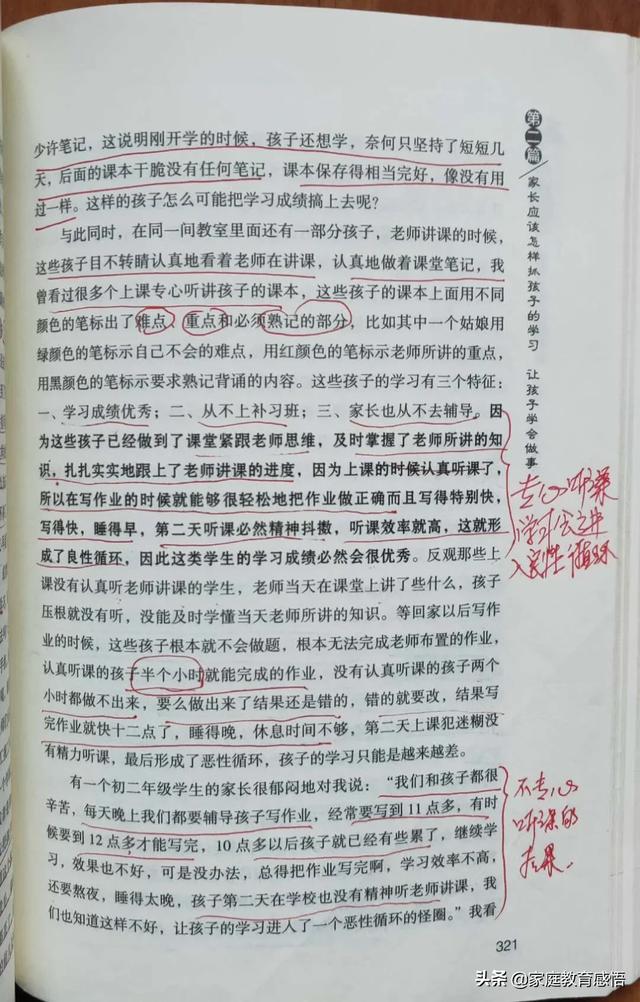 少许笔记，这说明刚开学的时候，孩子还想学，奈何只坚持了短短几
天，后面的课本干脆没有任何笔记，课本保存得相当完好，像没有用
过一样。这样的孩子怎么可能把学习成绩搞上去呢？
与此同时，在同一间教室里面还有一部分孩子，老师讲课的时候，
这些孩子目不转睛认真地看着老师在讲课，认真地做着课堂笔记，我
曾看过很多个上课专心听讲孩子的课本，这些孩子的课本上面用不同
颜色的笔标出了难点、重点和必须熟记的部分，比如其中一个姑娘用
绿颜色的笔标示自己不会的难点，用红颜色的笔标示老师所讲的重点，
用黑颜色的笔标示要求熟记背诵的内容。这些孩子的学习有三个特征：
一、学习成绩优秀；二、从不上补习班；三、家长也从不去辅导。因
为这些孩子已经做到了课堂紧跟老师思维，及时掌握了老师所讲的知
识，扎扎实实地跟上了老师讲课的进度，因为上课的时候认真听课了，
所以在写作业的时候就能够很轻松地把作业做正确而且写得特别快，
写得快，睡得早，第二天听课必然精神抖擞，听课效率就高，这就形
成了良性循环，因此这类学生的学习成绩必然会很优秀。反观那些上
课没有认真听老师讲课的学生，老师当天在课堂上讲了些什么，孩子
压根就没有听，没能及时学懂当天老师所讲的知识。等回家以后写作
业的时候，这些孩子根本就不会做题，根本无法完成老师布置的作业，
认真听课的孩子半个小时就能完成的作业，没有认真听课的孩子两个
小时都做不出来，要么做出来了结果还是错的，错的就要改，结果写
完作业就快十二点了，睡得晚，休息时间不够，第二天上课犯迷糊没
有精力听课，最后形成了恶性循环，孩子的学习只能是越来越差。
有一个初二年级学生的家长很郁闷地对我说：“我们和孩子都很
辛苦，每天晚上我们都要辅导孩子写作业，经常要写到11点多，有时
候要到12点多才能写完，10点多以后孩子就已经有些累了，继续学
习，效果也不好，可是没办法，总得把作业写完啊，学习效率不高，
还要熬夜，睡得太晚，孩子第二天在学校也没有精神听老师讲课，我
们也知道这样不好，让孩子的学习进入了一个恶性循环的怪圈。”我看
321
第二篇
家长应该怎样抓孩子的学习
让孩子学会做事
专心听课
学习会进
入良性循环
不专心
听课的
后果
头条 @家庭教育感悟